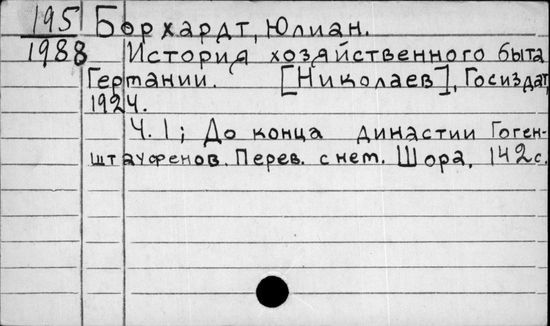 195 Борхардт, Юлиан.
1988 История хозяйственного быта
Германии. [Николаев], Госиздат,
1924.
Ч. I; До конца династии Гоген-
штауфенов. Перев. с нем. Шора, 142с.